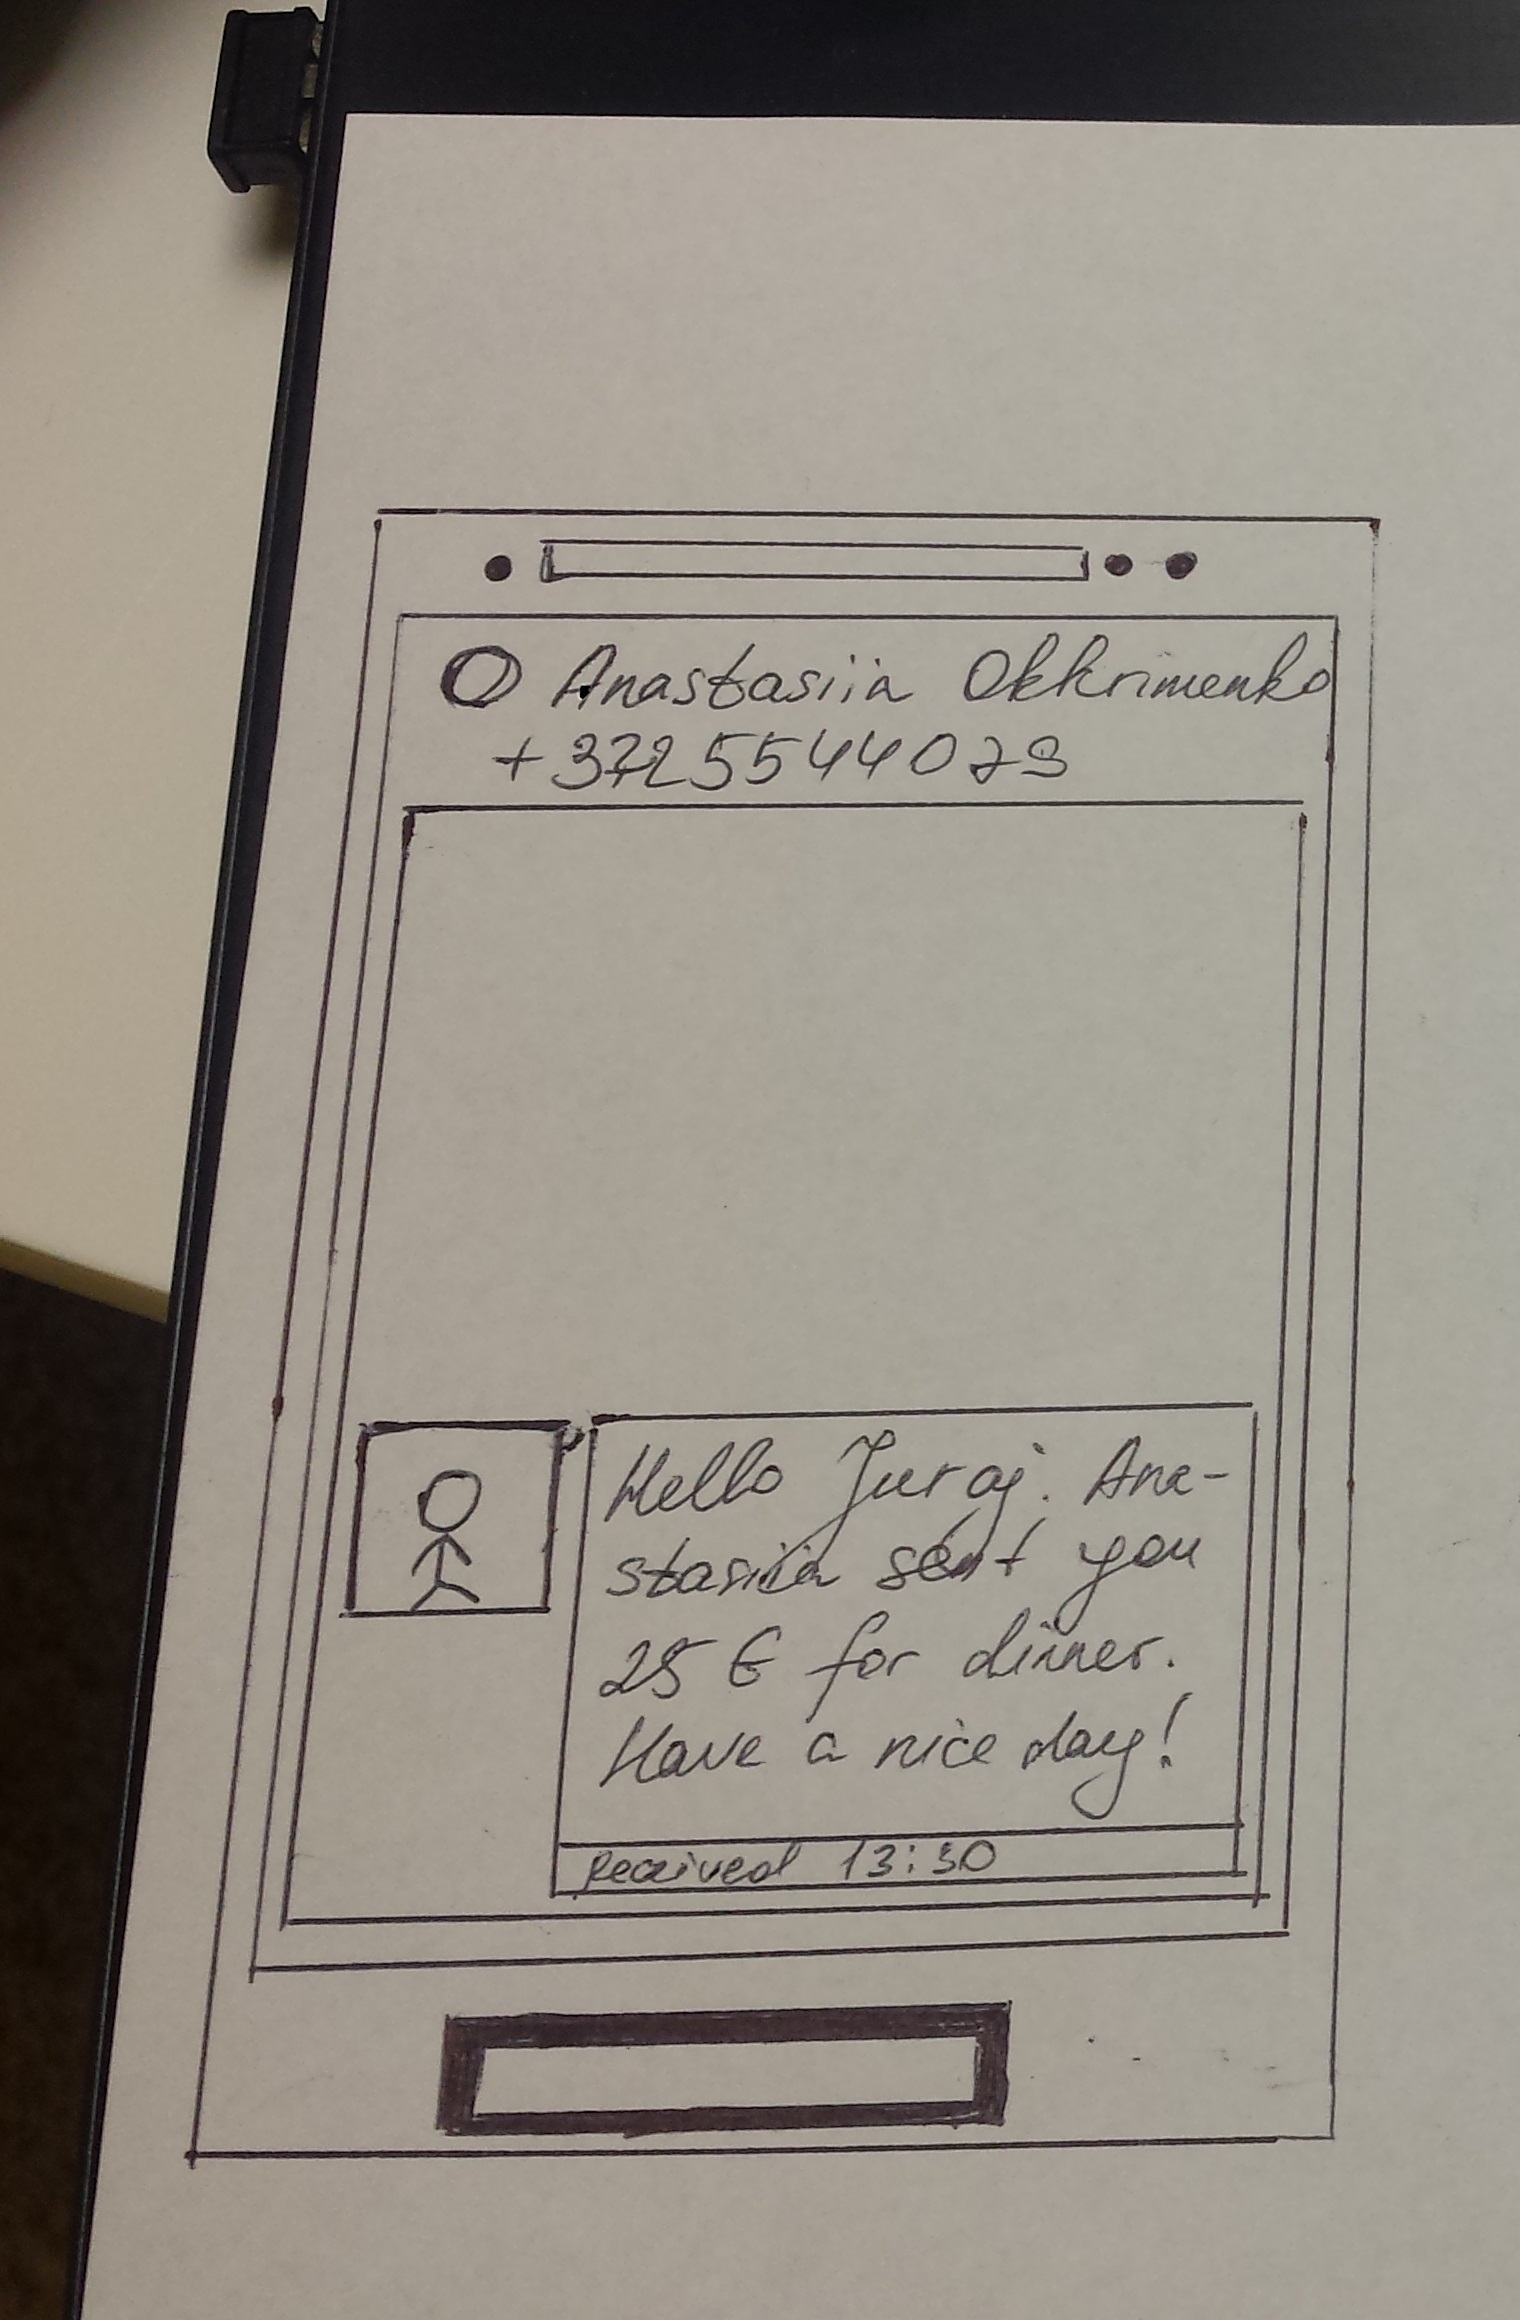 Anastasiia Okhrimenko
+3725544079
Hello Juraj. Ana-
stasiia sent you
25 € for dinner.
Have a nice day!
received 13:30